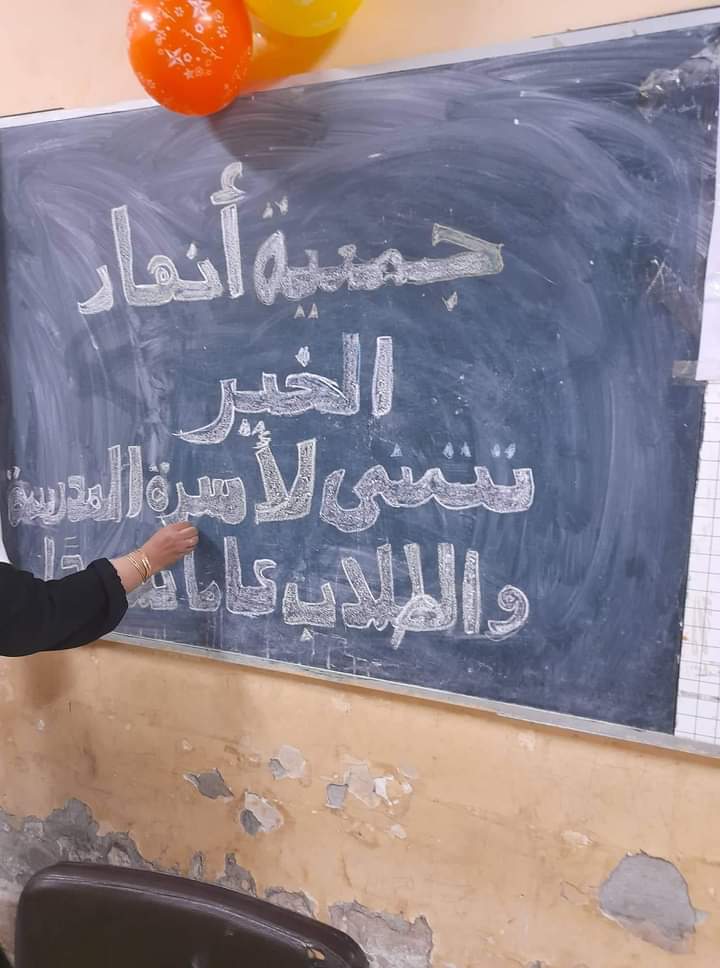 جمعية أنهار
الخير
تتمنى لأسرة المدرسة
والطلاب عاما